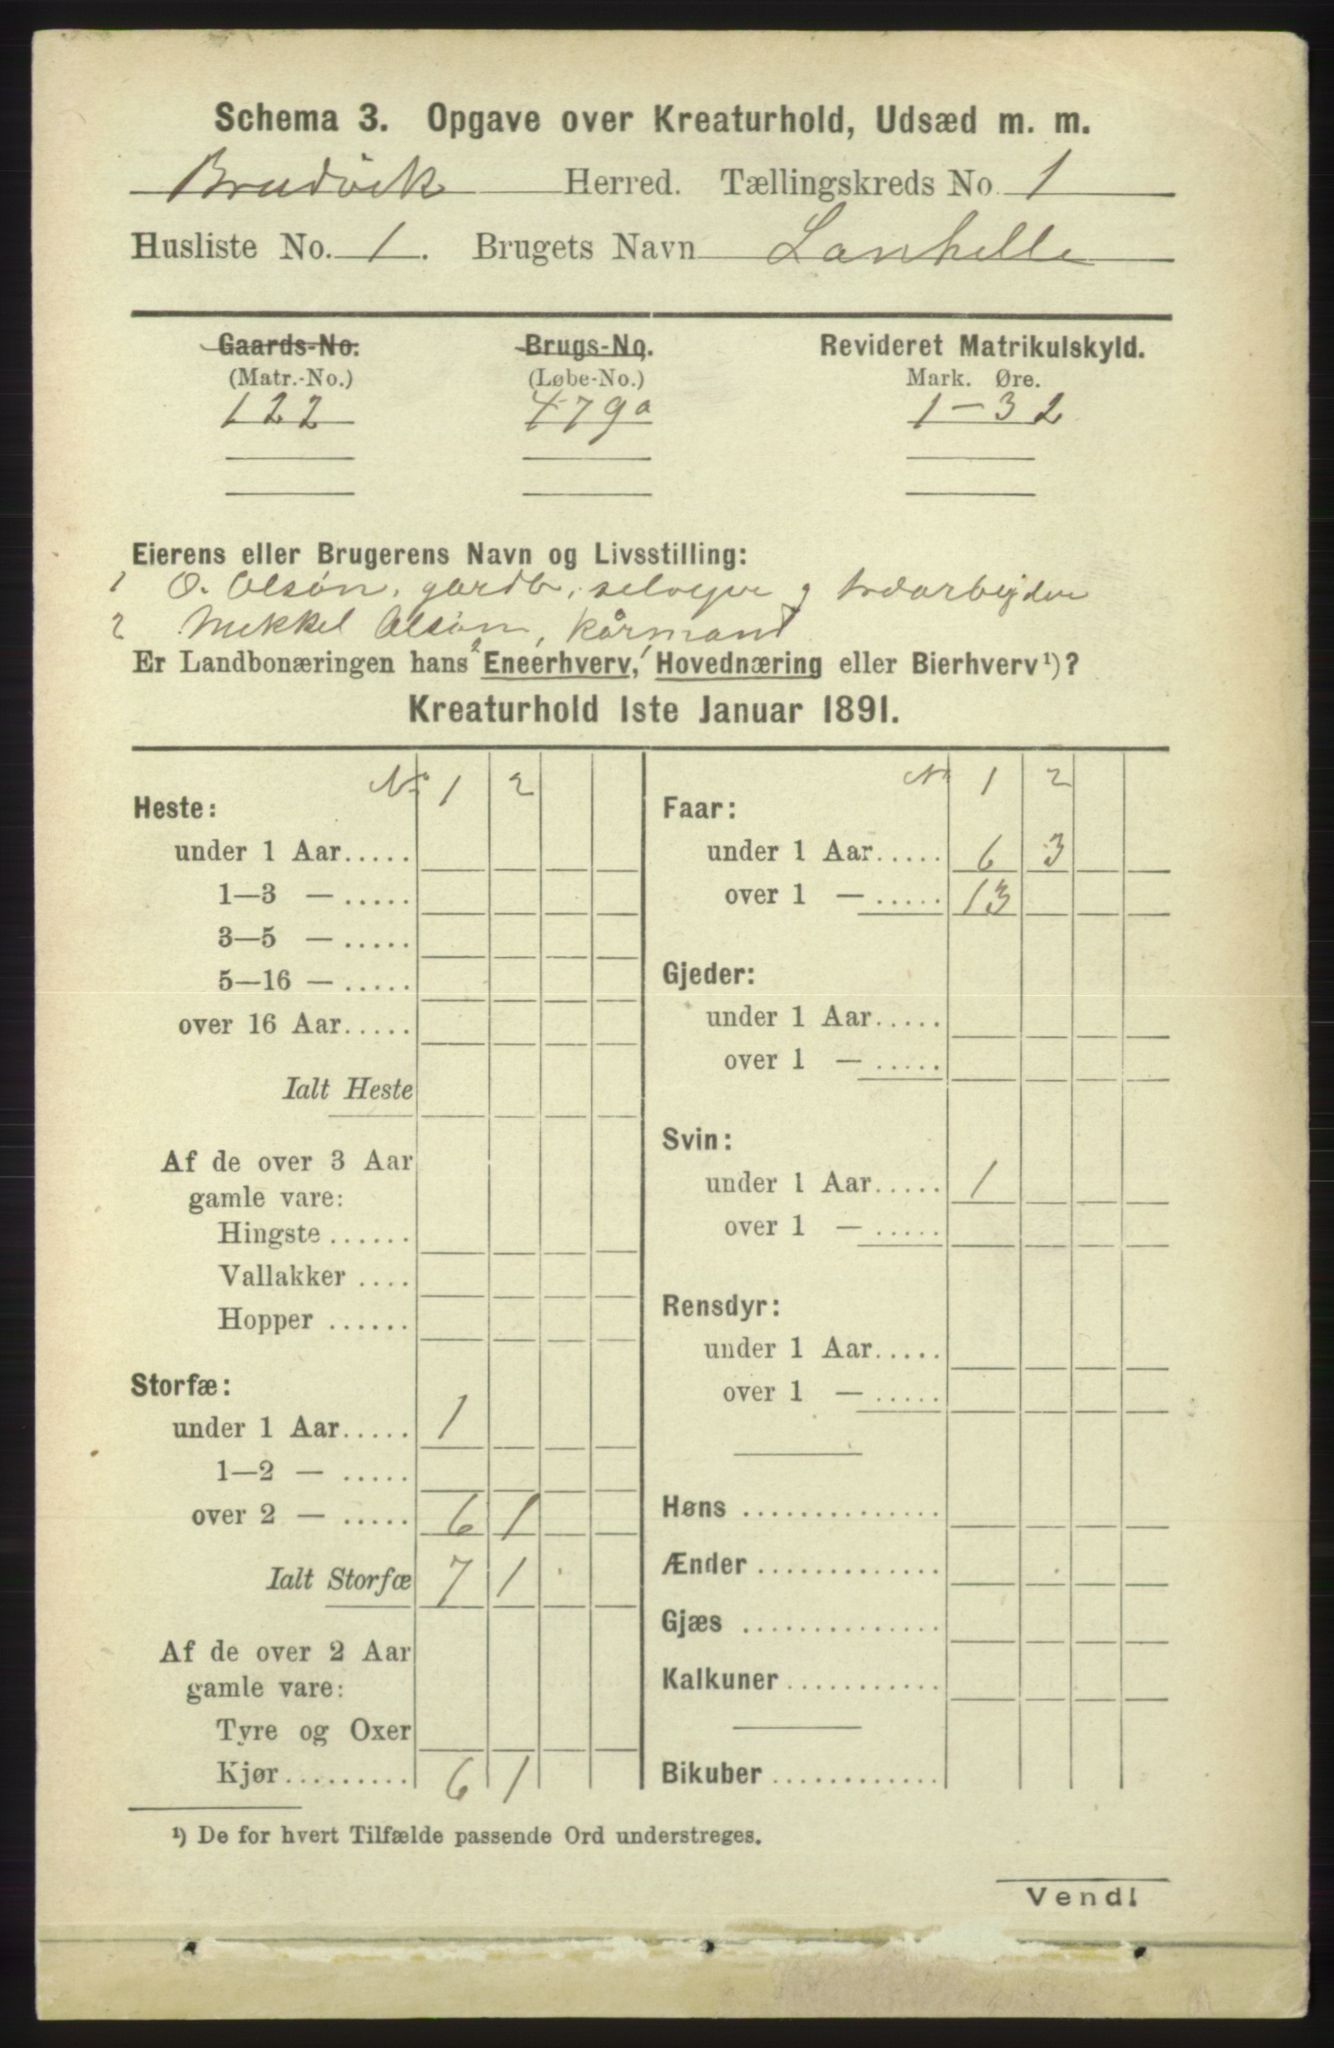 Schema 3. Opgave over Kreaturhold, Udsæd m. m.
Bruvik Herred. Tællingskreds No. 1
Husliste No. 1. Brugets Navn Lanhelle
Gaards-No. Brugs-No. Revideret Matrikulskyld.
(Matr.-No.) (Løbe-No.) Mark. Øre.
122 479a 1-32
Eierens eller Brugerens Navn og Livsstilling:
1 O. Olsøn, gardb, selveger g træarbejder
2 Mekkel Olsøn, kårmand
Er Landbonæringen hans 2 Eneerhverv, 1 Hovednæring eller Bierhverv ¹)?
Kreaturhold 1ste Januar 1891.
No 1 2
Heste:
under 1 Aar.....
1—3 — .....
3—5 — .....
5—16 — .....
over 16 Aar.....
Ialt Heste
Af de over 3 Aar
gamle vare:
Hingste ......
Vallakker ....
Hopper ......
Storfæ:
under 1 Aar..... 1
1—2 — .....
over 2 — ..... 6 1
Ialt Storfæ 7 1
Af de over 2 Aar
gamle vare:
Tyre og Oxer
Kjør......... 6 1
N 1 2
Faar:
under 1 Aar..... 6 3
over 1 — ..... 13
Gjeder:
under 1 Aar.....
over 1 — .....
Svin:
under 1 Aar..... 1
over 1 — .....
Rensdyr:
under 1 Aar.....
over 1 — .....
Høns ..............
Ænder .............
Gjæs ..............
Kalkuner ...........
Bikuber ............
¹) De for hvert Tilfælde passende Ord understreges.
Vend!